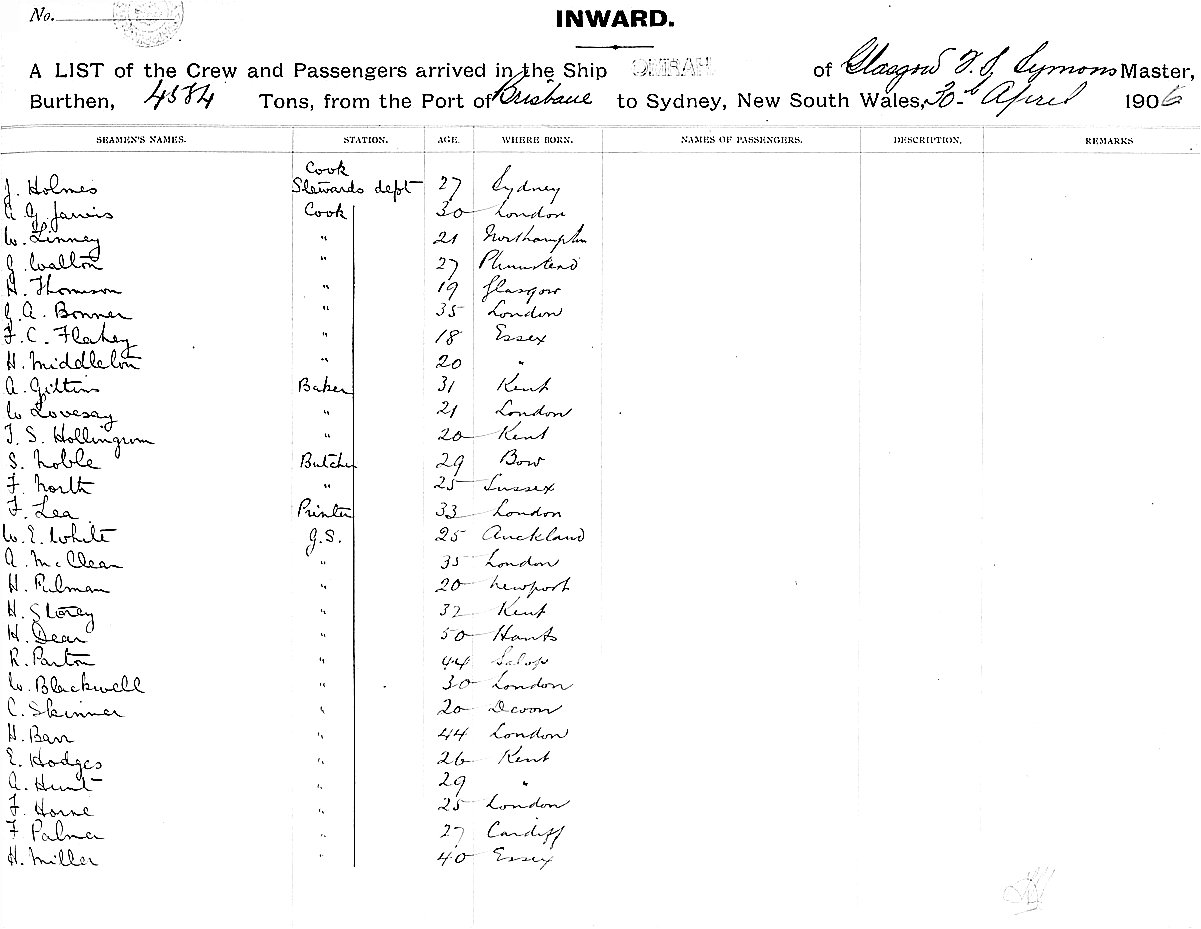 No.
INWARD.
A LIST of the Crew and Passengers arrived in the Ship OMRAH of Glasgow T. S. Symons Master,
Burthen, 4584 Tons, from the Port of Brisbane to Sydney, New South Wales, 30 April 1906
SEAMEN'S NAMES. STATION. AGE. WHERE BORN. NAMES OF PASSENGERS. DESCRIPTION. REMARKS
Cook
J. Holmes Stewards dept 27 Sydney
G. Jarvis Cook 30 London
W. Linney " 21 Northampton
Walton " 27 Plumstead
H. Thomson " 19 Glasgow
A. Bonner " 35 London
F. C. Flahey " 18 Essex
H. Middleton " 20 "
A. Gittins Baker 31 Kent
W. Lovesay " 21 London
T. S. Hollingrum " 20 Kent
S. Noble Butcher 29 Bow
F. North " 25 Sussex
F. Lea Printer 33 London
W. E. White G.S. 25 Auckland
A. McClean " 35 London
H. Pulman " 20 Newport
H. Storey " 32 Kent
H. Dear " 50 Hants
R. Parton " 44 Salop
W. Blackwell " 30 London
C. Skinner " 20 Devon
H. Barr " 44 London
E. Hodges " 26 Kent
A. Hunt " 29 "
F. Horne " 25 London
F. Palmer " 27 Cardiff
H. Miller " 40 Essex